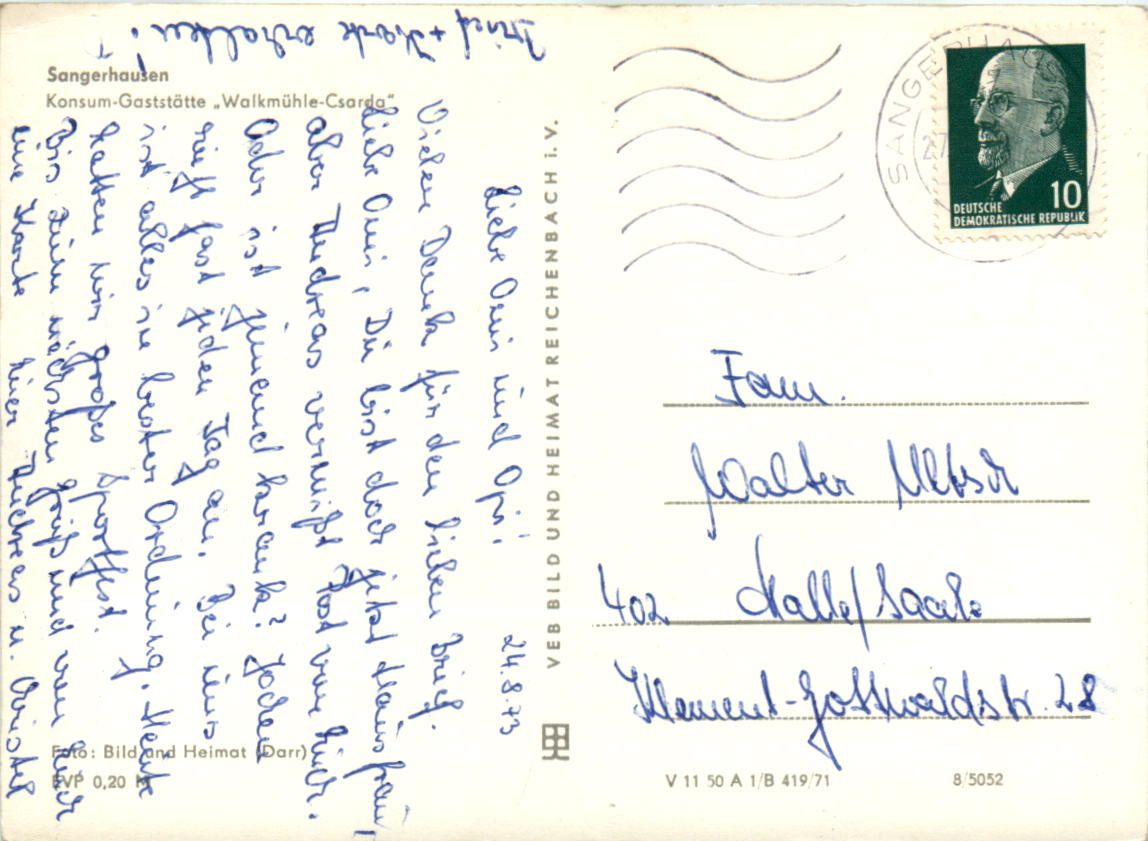 Sangerhausen
Konsum-Gaststätte „Walkmühle-Csarda"
24.8.73
Liebe Omi und Opi!
Vielen Dank für den lieben Brief.
Liebe Omi, Du bist doch jetzt Hausfrau,
aber Andreas vermißt Post von Euch.
Oder ist jemand krank? Jochen
rief fast jeden Tag an. Bei uns
ist alles in bester Ordnung. Heute
hatten wir großes Sportfest.
Bis zum nächsten Gruß und von Euch
eine Karte Eure Andreas u. Christel
Brief + Karte erhalten!
VEB BILD UND HEIMAT REICHENBACH i. V.
Foto: Bild und Heimat (Darr)
EVP 0,20 M
SANGERHAUSEN
27
10
DEUTSCHE
DEMOKRATISCHE REPUBLIK
Fam.
Walter
402 Halle/Saale
Klement-Gottwaldstr. 28
V 11 50 A 1/B 419/71
8/5052